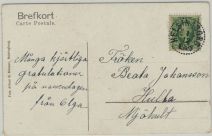 Brefkort
Carte Postale.
Många hjärtliga
gratulationer
på namnsdagen
från Olga.
Fröken
Beata Johansson
Hulta
Mjöhult